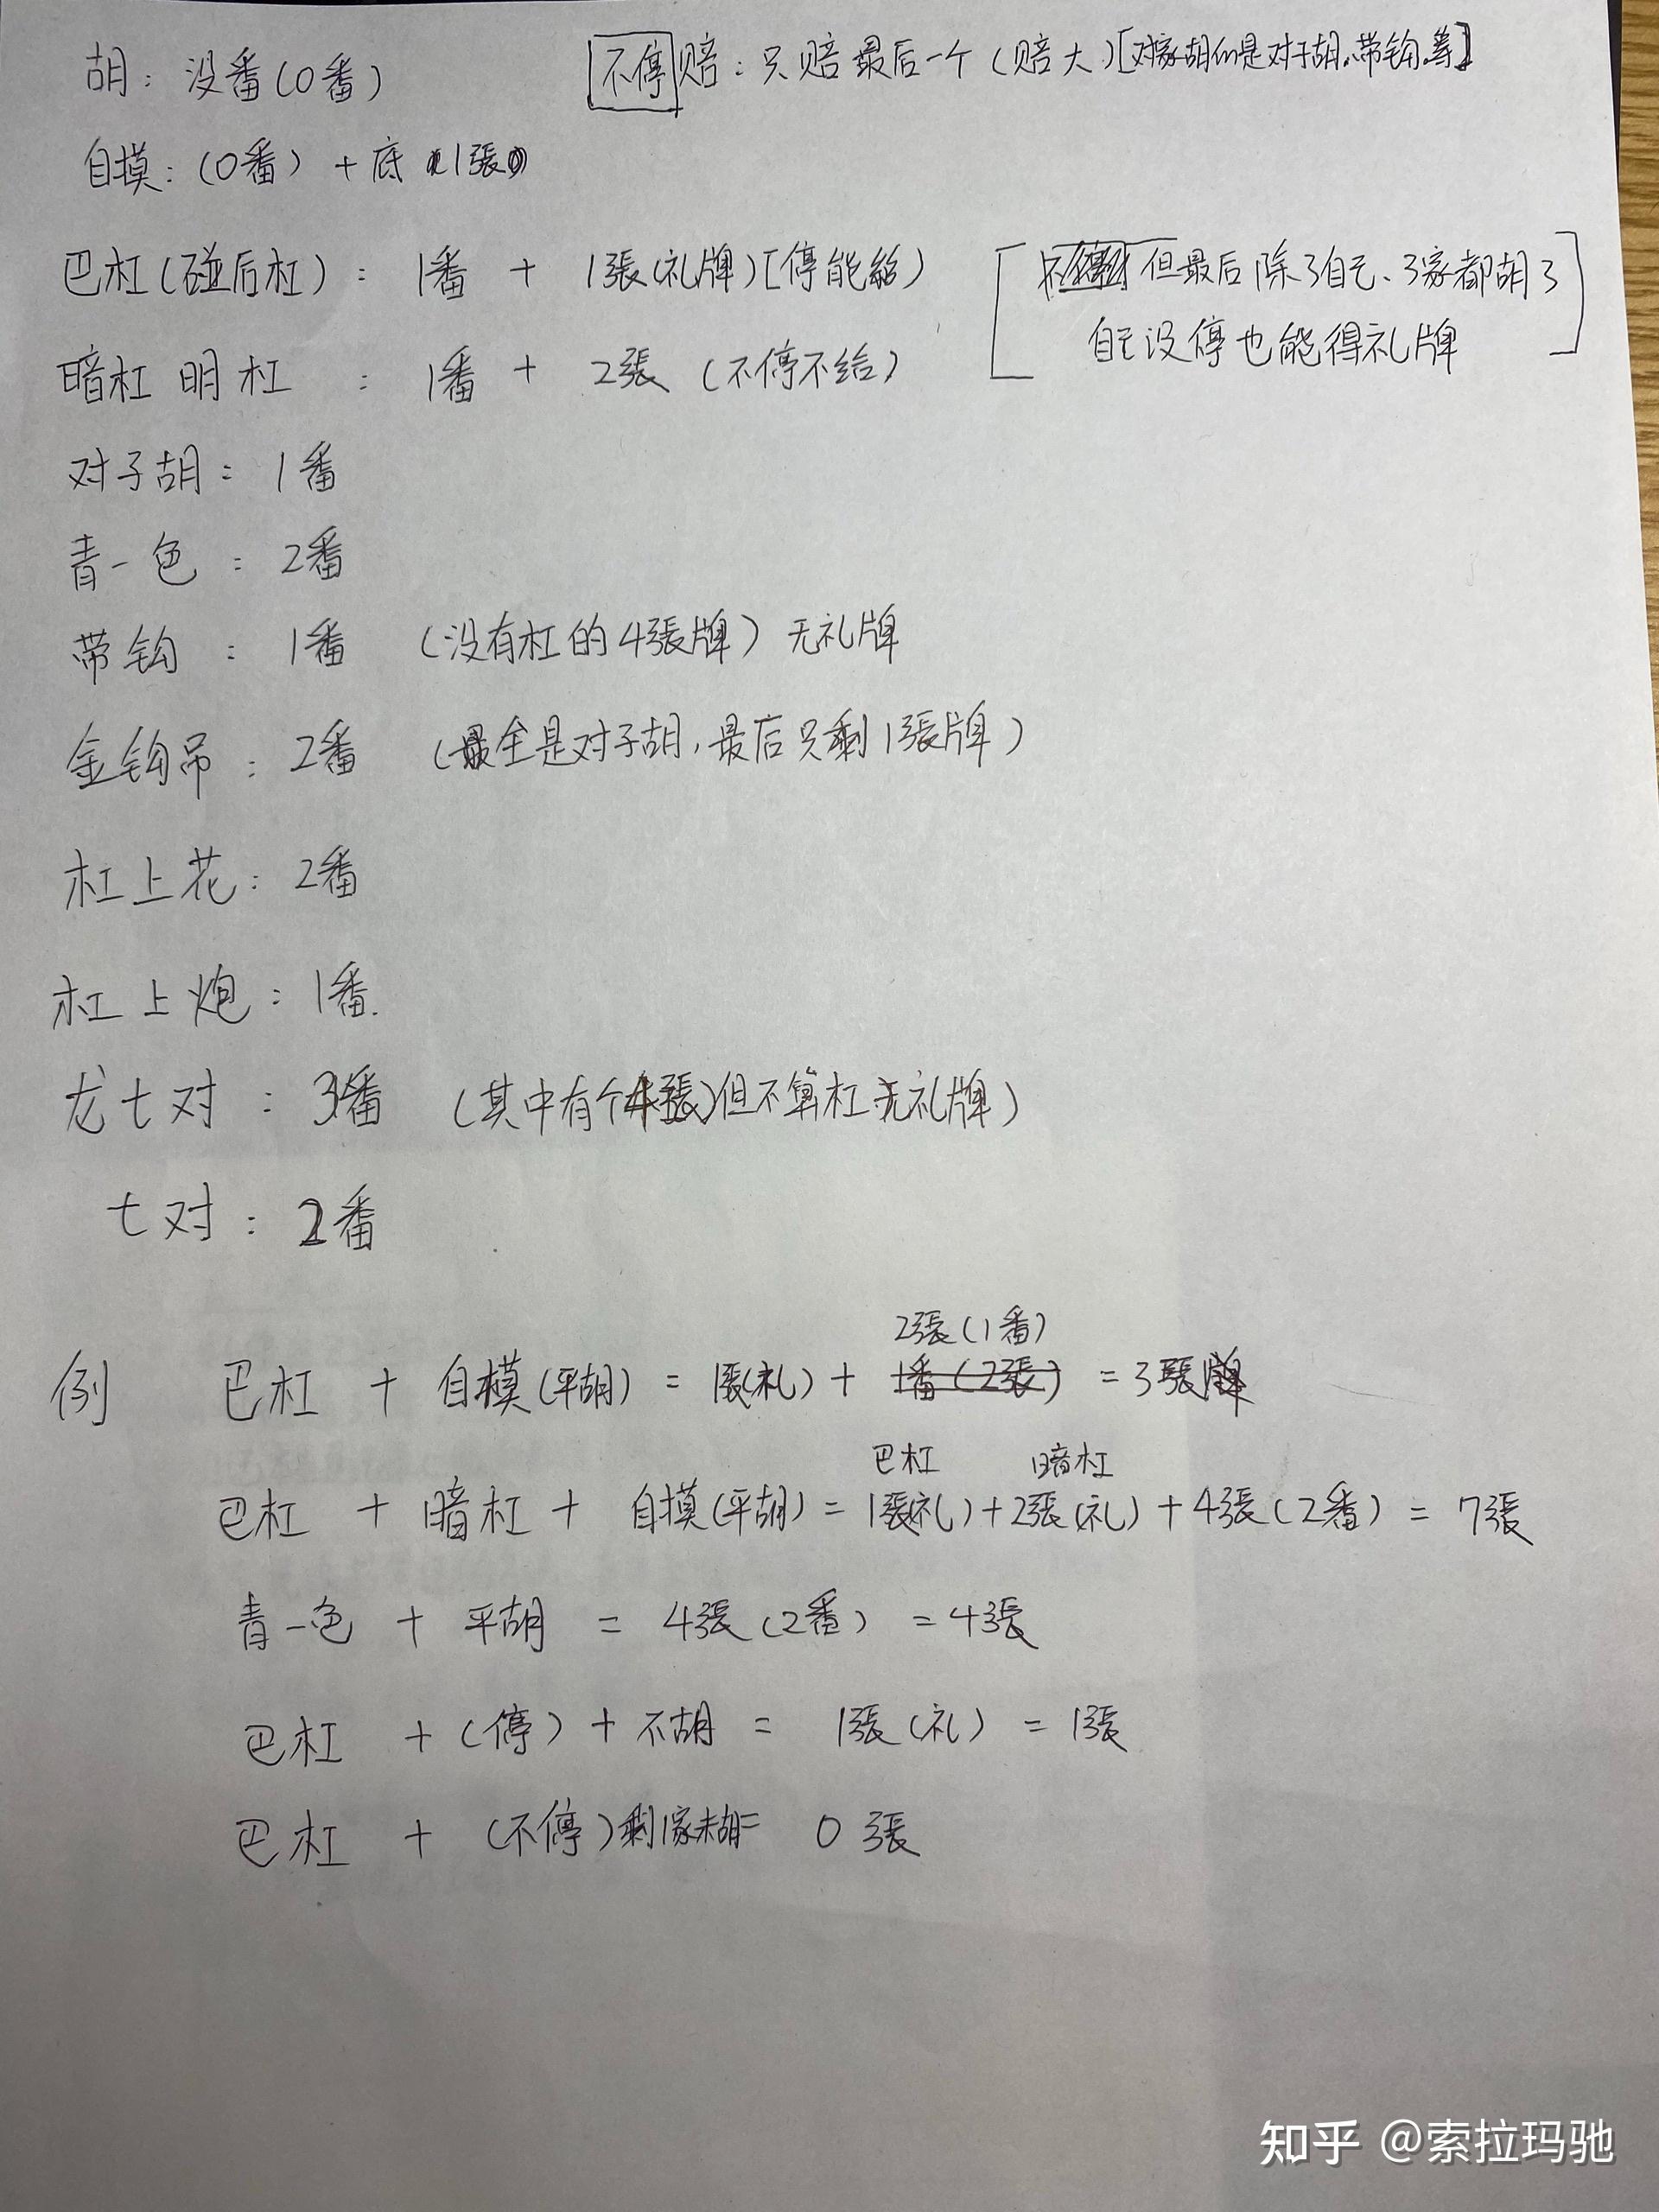 胡：没番（0番）
不停赔：只赔最后一个（赔大）[对家胡的是对于胡、带钩、等]
自摸：（0番）+底 1張
巴杠（碰后杠）：1番 + 1張（礼牌）[停能给）
[不停 但最后除了自己、3家都胡了
自己没停也能得礼牌]
暗杠 明杠：1番 + 2張（不停不给）
对子胡：1番
青一色：2番
带钩：1番（没有杠的4張牌）无礼牌
金钩吊：2番（全是对子胡，最后只剩1張牌）
杠上花：2番
杠上炮：1番.
龙七对：3番（其中有个4張）但不算杠无礼牌）
七对：2番
2張（1番）
例 巴杠 + 自摸（平胡）= 1張（礼）+ 1番（2張） = 3張牌
巴杠 暗杠
巴杠 + 暗杠 + 自摸（平胡）= 1張（礼）+2張（礼）+4張（2番）= 7張
青一色 + 平胡 = 4張（2番） =4張
巴杠 +（停）+ 不胡 = 1張（礼） = 1張
巴杠 + （不停）剩1家未胡= 0張
知乎 @索拉玛驰